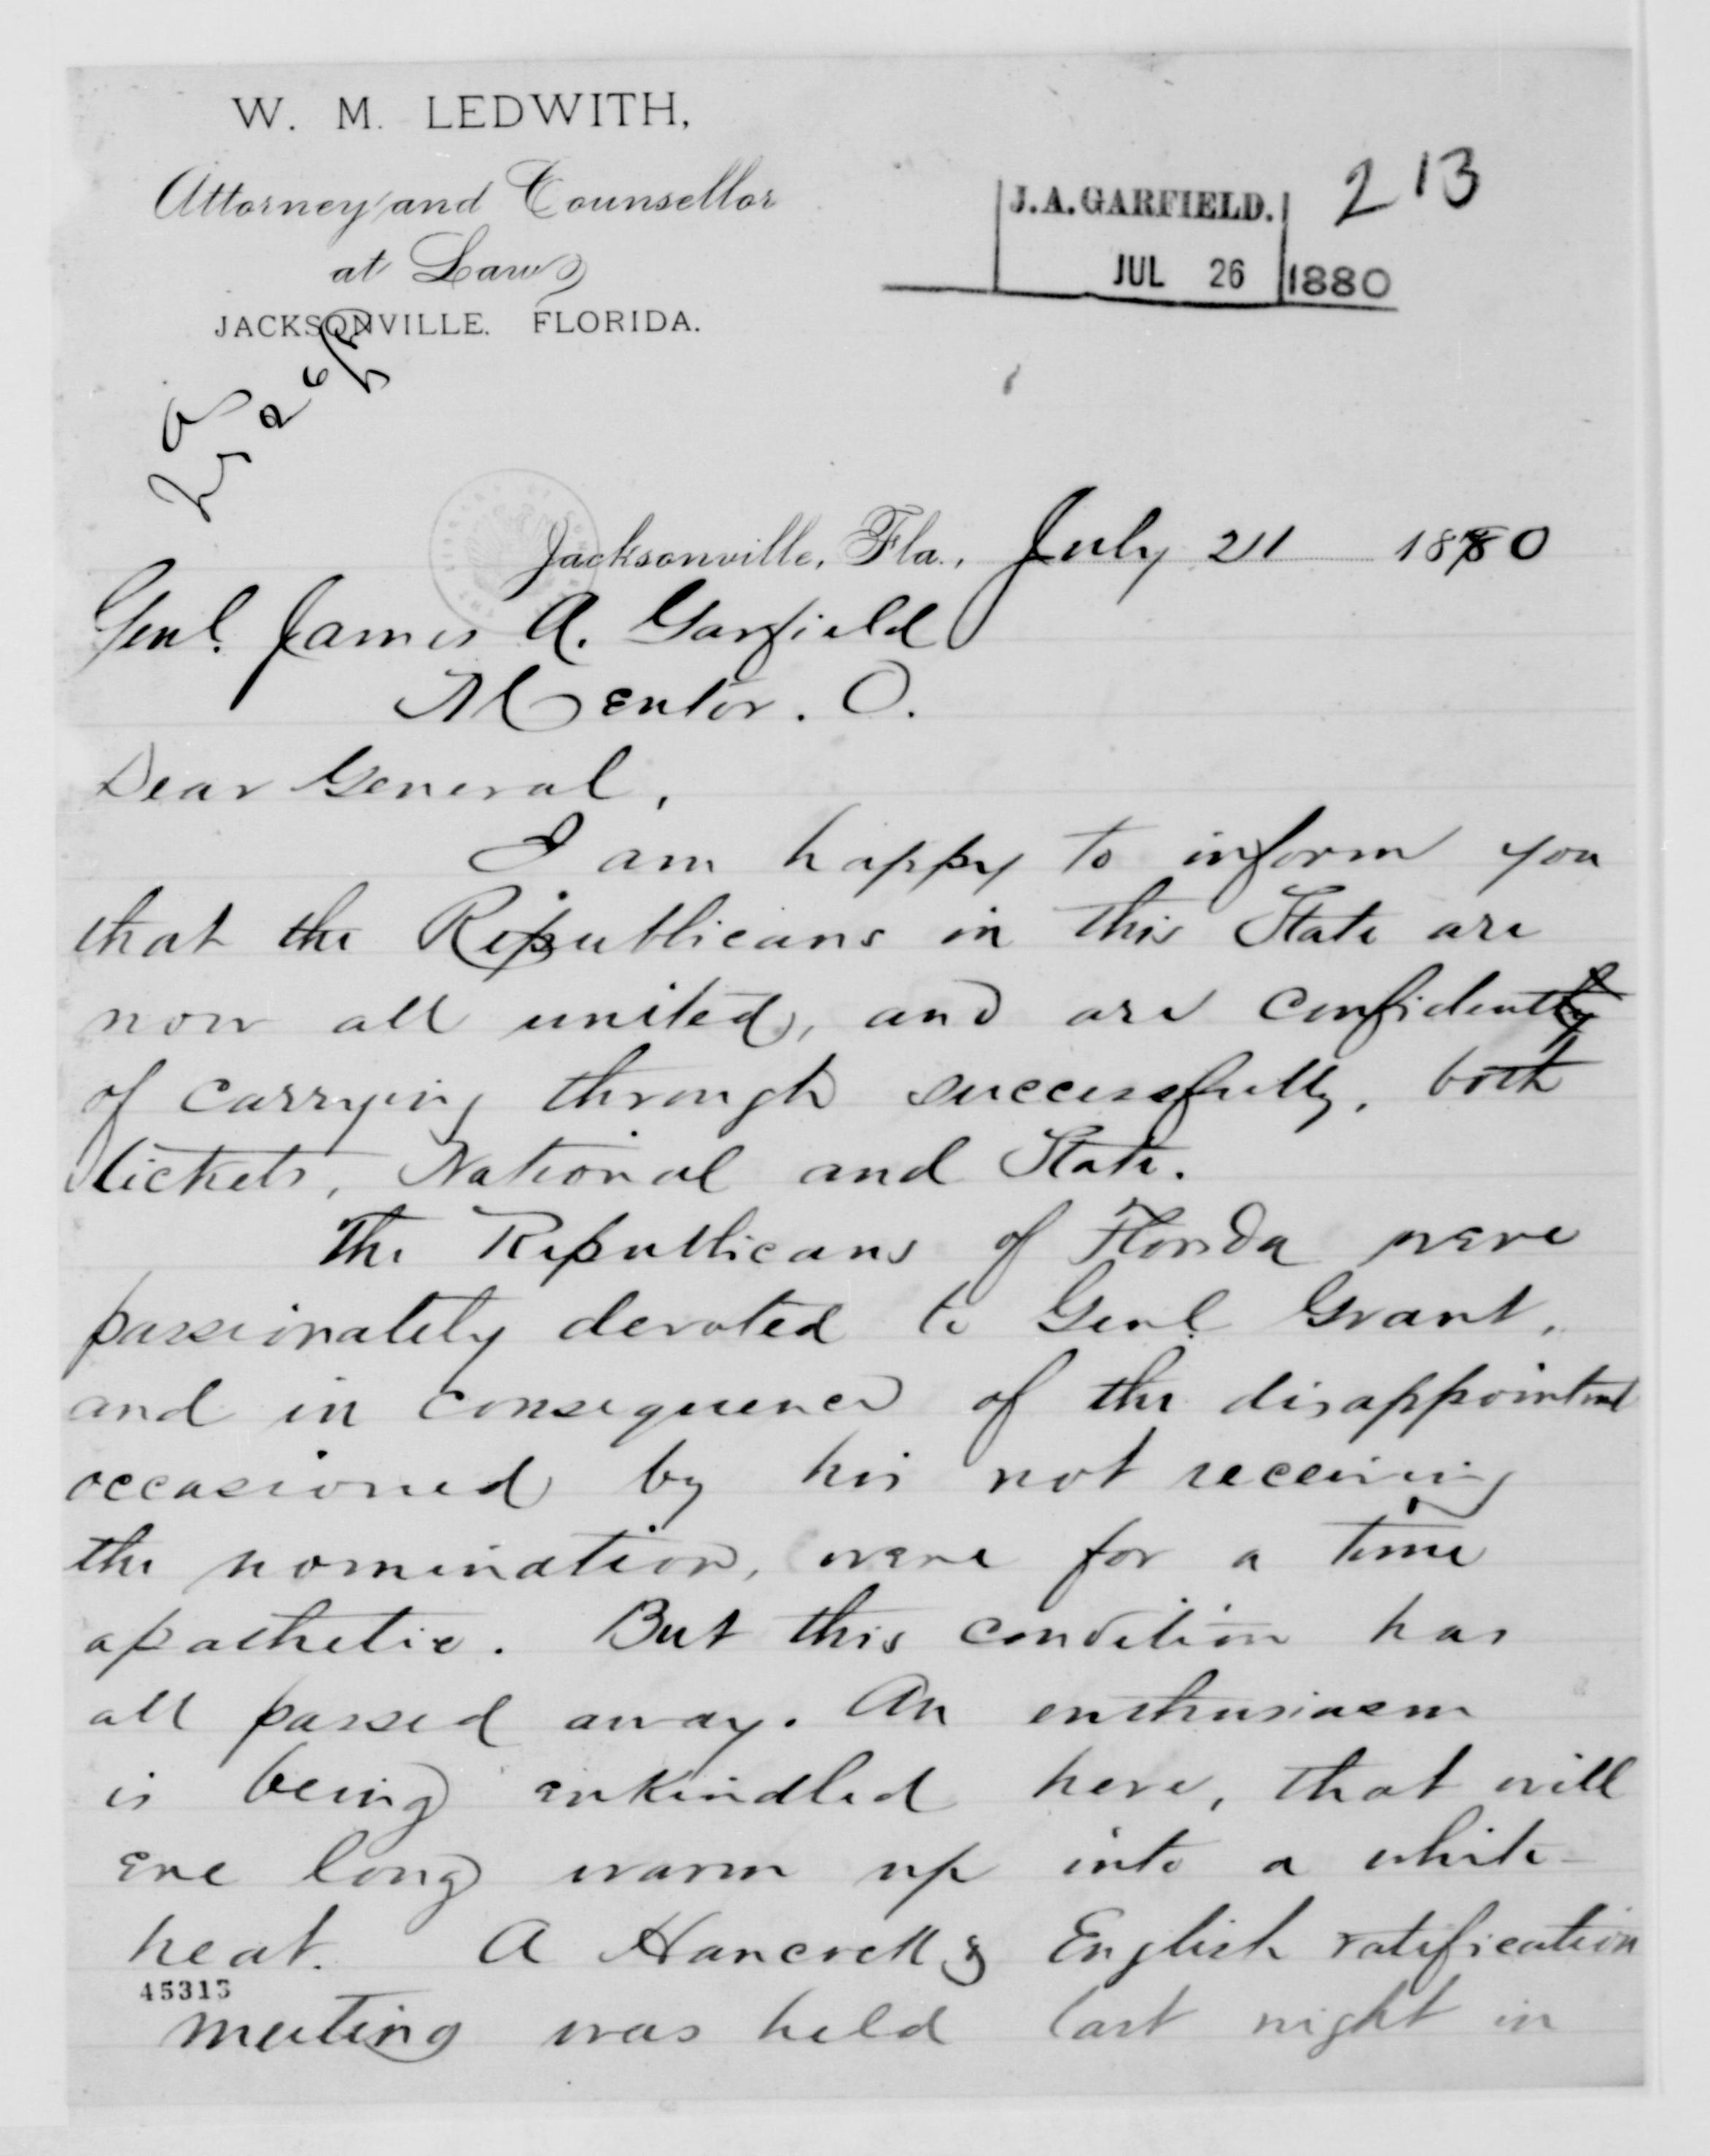 W. M. LEDWITH,
Attorney and Counsellor
at Law
JACKSONVILLE. FLORIDA.
J.A. GARFIELD.
JUL 26 1880
213
Jacksonville, Fla., July 21 1880
Genl. James A. Garfield
Mentor. O.
Dear General,
I am happy to inform you
that the Republicans in this State are
now all united, and are confident
of carrying through successfully, both
tickets, National and State.
The Republicans of Florida were
passionately devoted to Genl Grant,
and in consequence of the disappointmt
occasioned by his not receiving
the nomination, were for a time
apathetic. But this condition has
all passed away. An enthusiasm
is being enkindled here, that will
ere long warm up into a white-
heat. A Hancock & English ratification
45313
meeting was held last night in